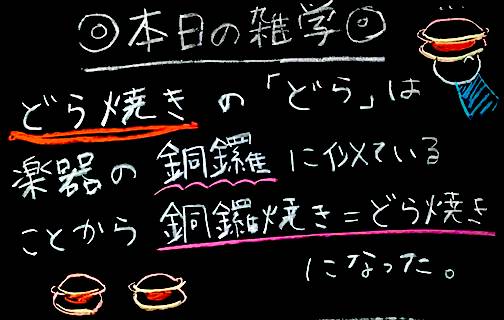 ◎本日の雑学◎
どら焼きの「どら」は
楽器の銅鑼に似ている
ことから銅鑼焼き=どら焼き
になった。